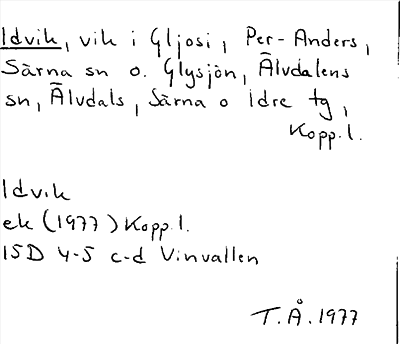 Idvik, vik i Gljosi, Per-Anders,
Särna sn o. Glysjön, Älvdalens
sn, Älvdals, Särna o Idre tg,
Kopp.l.
Idvik
ek (1977) Kopp.l.
15D 4-5 c-d Vinvallen
T.Å. 1977